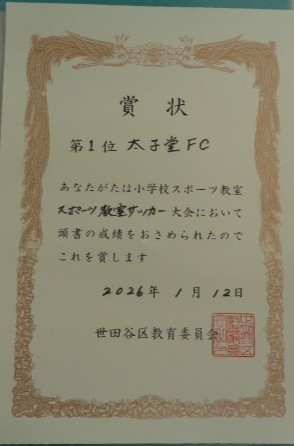 賞状
第1位 太子堂FC
あなたがたは小学校スポーツ教室
スポーツ教室サッカー大会において
頭書の成績をおさめられたので
これを賞します
2026年 1月 12日
世田谷区教育委員会